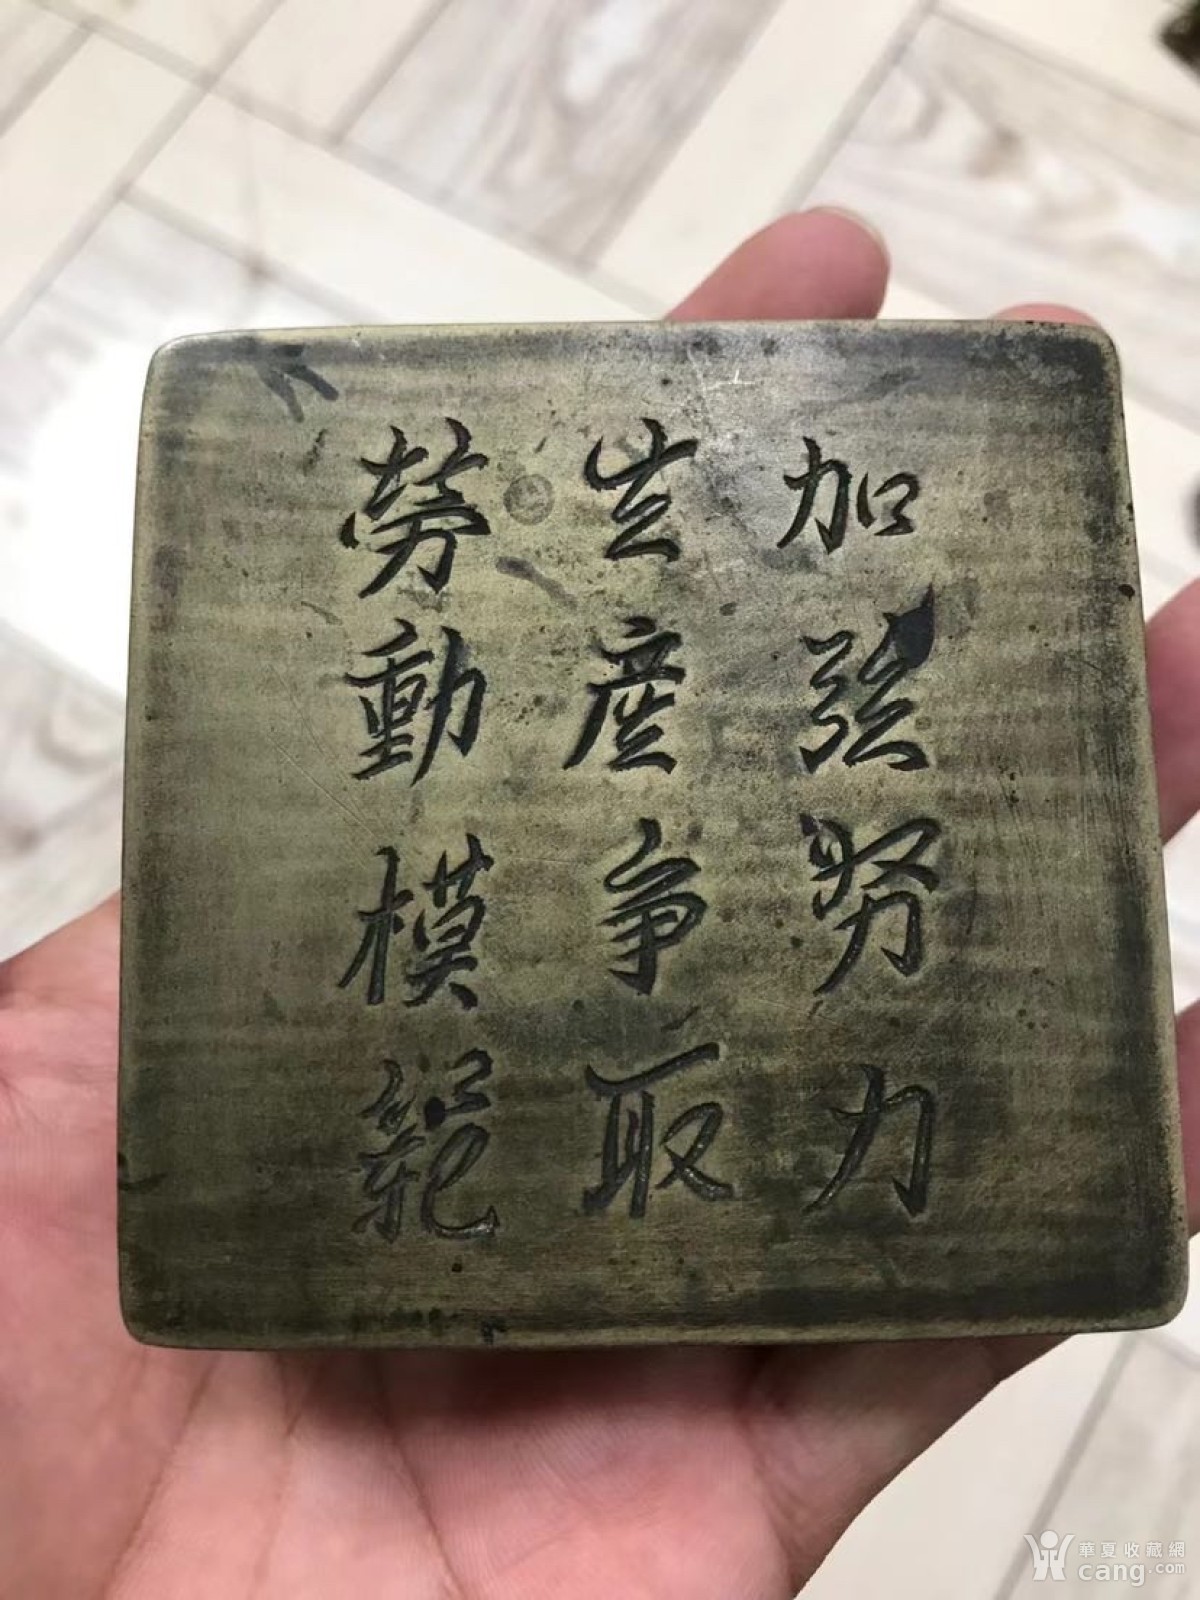 加强努力
生産争取
勞動模範
華夏收藏網
cang.com